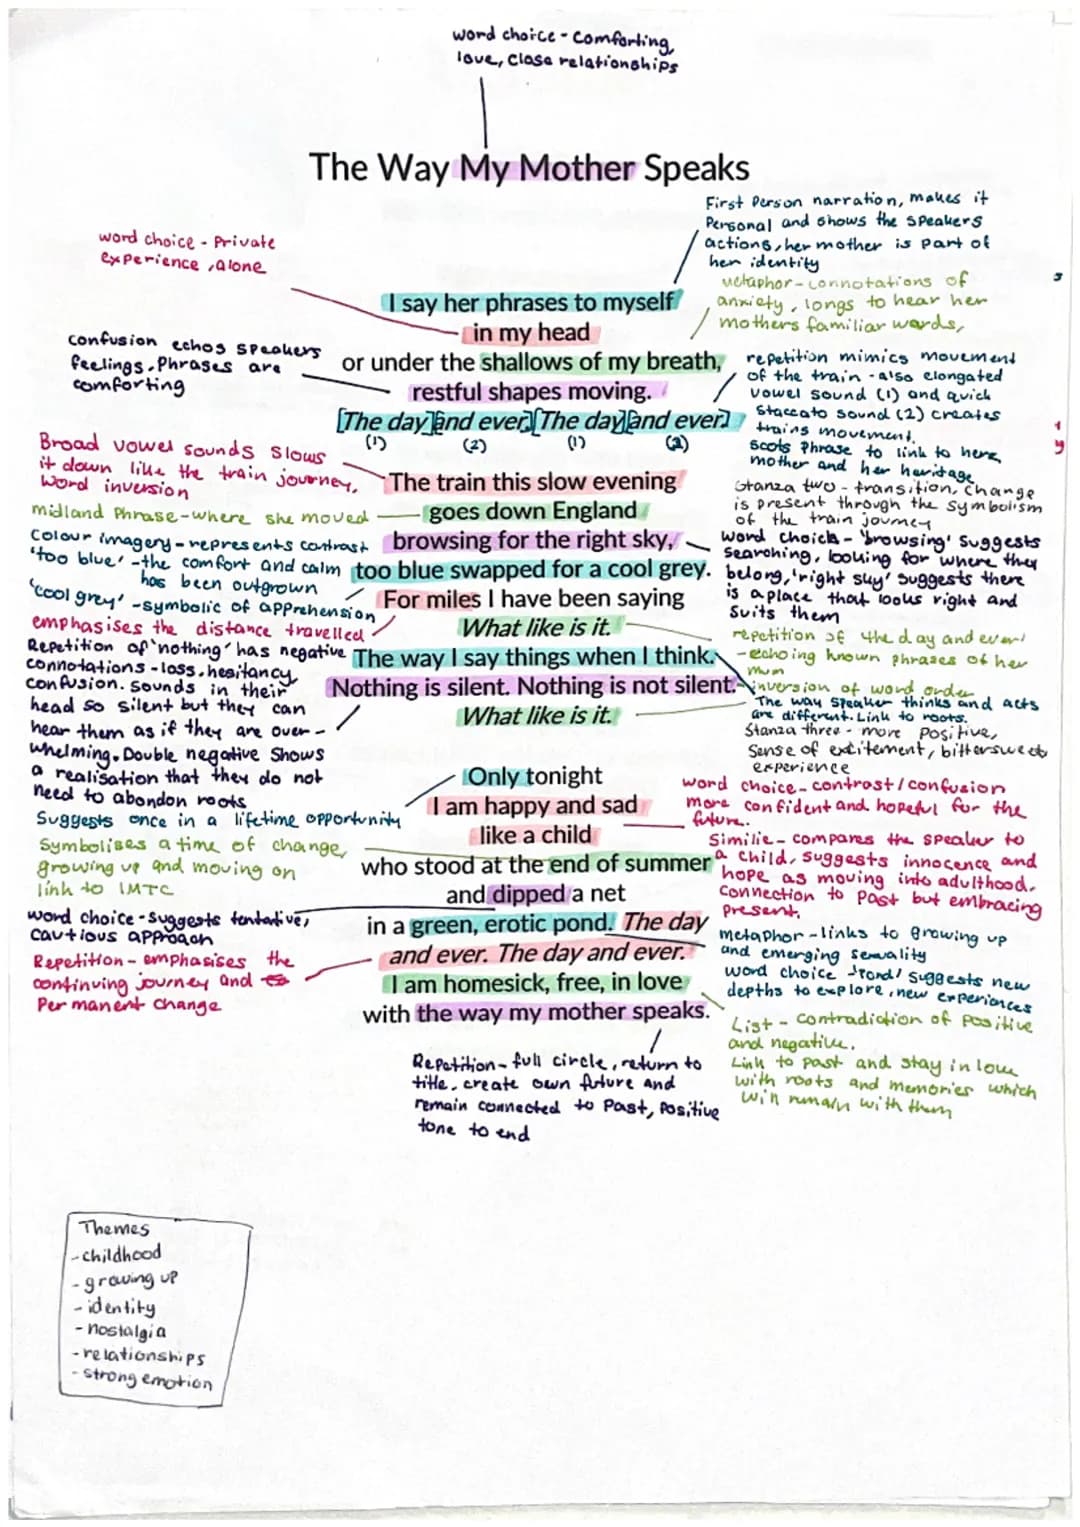 word choice - Comforting,
love, close relationships
The Way My Mother Speaks
First Person narration, makes it
Personal and shows the speakers
actions, her mother is part of
her identity
word choice - Private
experience, alone
metaphor - connotations of
anxiety, longs to hear her
mothers familiar words,
I say her phrases to myself
in my head
or under the shallows of my breath,
restful shapes moving.
[The day][and ever.][The day][and ever.]
(1) (2) (1) (2)
confusion echos speakers
feelings. Phrases are
comforting
repetition mimics movement
of the train - also elongated
vowel sound (1) and quick
staccato sound (2) creates
trains movement.
scots phrase to link to here,
mother and her heritage
Broad vowel sounds slows
it down like the train journey,
word inversion
midland Phrase - where she moved
Stanza two - transition, change
is present through the symbolism
of the train journey
The train this slow evening
goes down England
browsing for the right sky,
too blue swapped for a cool grey.
For miles I have been saying
What like is it.
The way I say things when I think.
Nothing is silent. Nothing is not silent.
What like is it.
Colour imagery - represents contrast
'too blue' - the comfort and calm
has been outgrown
'cool grey' - symbolic of apprehension
emphasises the distance travelled
word choich - 'browsing' suggests
searching, looking for where they
belong, 'right sky' suggests there
is a place that looks right and
suits them
repetition of 'the day and ever'
- echoing known phrases of her
mum
inversion of word order
The way speaker thinks and acts
are different. Link to roots.
Repetition of 'nothing' has negative
connotations - loss, hesitancy,
confusion. sounds in their
head so silent but they can
hear them as if they are over-
whelming. Double negative shows
a realisation that they do not
need to abandon roots
Stanza three - more positive,
Sense of excitement, bittersweet
experience
Only tonight
I am happy and sad
like a child
who stood at the end of summer
and dipped a net
in a green, erotic pond. The day
and ever. The day and ever.
I am homesick, free, in love
with the way my mother speaks.
Suggests once in a lifetime opportunity
Symbolises a time of change,
growing up and moving on
link to IMTC
word choice - suggests tentative,
cautious approach
Repetition - emphasises the
continuing journey and
Permanent change
word choice - contrast/confusion
more confident and hopeful for the
future.
Similie - compares the speaker to
a child, suggests innocence and
hope as moving into adulthood.
Connection to past but embracing
present.
metaphor - links to growing up
and emerging sexuality
word choice 'pond' suggests new
depths to explore, new experiences
List - contradiction of positive
and negative.
Link to past and stay in love
with roots and memories which
will remain with them
Repetition - full circle, return to
title, create own future and
remain connected to past, positive
tone to end
Themes
- childhood
- growing up
- identity
- nostalgia
- relationships
- strong emotion